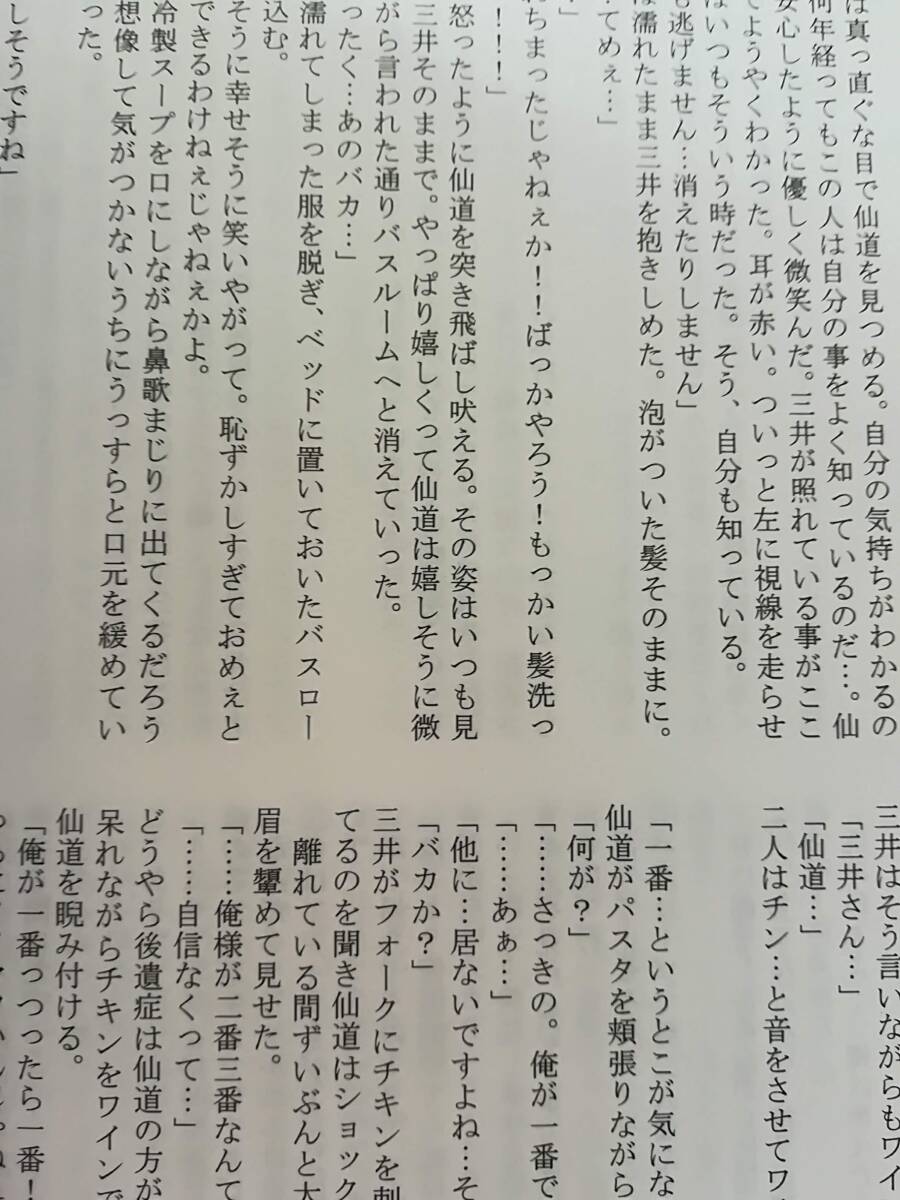 は真っ直ぐな目で仙道を見つめる。自分の気持ちがわかるの
何年経ってもこの人は自分の事をよく知っているのだ…。仙
安心したように優しく微笑んだ。三井が照れている事がここ
てようやくわかった。耳が赤い。ついっと左に視線を走らせ
はいつもそういう時だった。そう、自分も知っている。
も逃げません…消えたりしません」
は濡れたまま三井を抱きしめた。泡がついた髪そのままに。
てめぇ…」
」
れちまったじゃねぇか！！ばっかやろう！もっかい髪洗っ
！！！」
怒ったように仙道を突き飛ばし吠える。その姿はいつも見
三井そのままで。やっぱり嬉しくって仙道は嬉しそうに微
がら言われた通りバスルームへと消えていった。
ったく…あのバカ…」
濡れてしまった服を脱ぎ、ベッドに置いておいたバスロー
込む。
そうに幸せそうに笑いやがって。恥ずかしすぎておめぇと
できるわけねぇじゃねぇかよ。
冷製スープを口にしながら鼻歌まじりに出てくるだろう
想像して気がつかないうちにうっすらと口元を緩めてい
った。
しそうですね」
三井はそう言いながらもワイ
「三井さん…」
「仙道…」
二人はチン…と音をさせてワ
「一番…というとこが気にな
仙道がパスタを頬張りながら
「何が？」
「……さっきの。俺が一番で
「……あぁ…」
「他に…居ないですよね…そ
「バカか？」
三井がフォークにチキンを刺
てるのを聞き仙道はショック
離れている間ずいぶんと大
眉を顰めて見せた。
「……俺様が二番三番なんて
「……自信なくって…」
どうやら後遺症は仙道の方が
呆れながらチキンをワインで
仙道を睨み付ける。
「俺が一番っつったら一番！